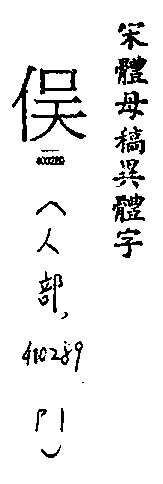 宋體母稿異體字
俣
(人部,
410289
P1)